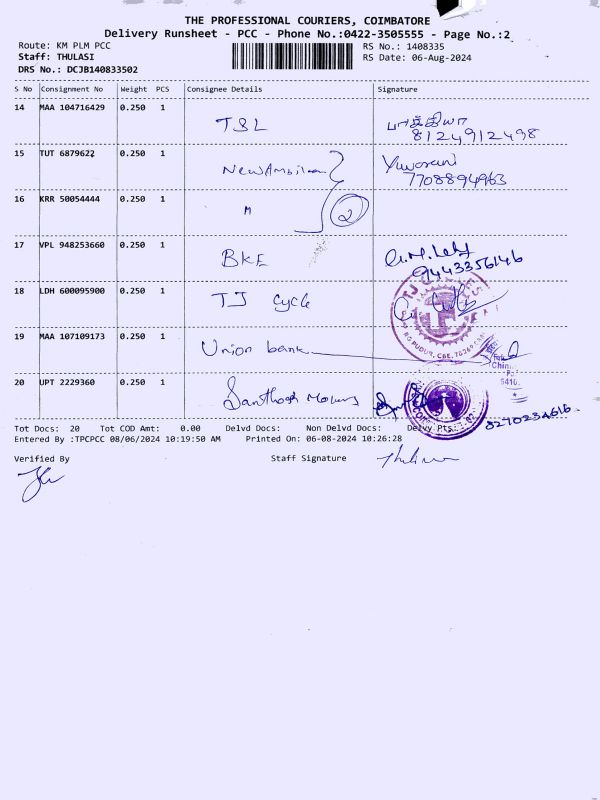 THE PROFESSIONAL COURIERS, COIMBATORE
Delivery Runsheet - PCC - Phone No.:0422-3505555 - Page No.:2
Route: KM PLM PCC RS No.: 1408335
Staff: THULASI RS Date: 06-Aug-2024
DRS No.: DCJB140833502
S No Consignment No Weight PCS Consignee Details Signature
14 MAA 104716429 0.250 1 TSL
8124912498
15 TUT 6879622 0.250 1 Yuvarani
7708894963
16 KRR 50054444 0.250 1 " 2
17 VPL 948253660 0.250 1 BKE
9443356146
18 LDH 600095900 0.250 1 TJ Cycle
19 MAA 107109173 0.250 1 Union bank
20 UPT 2229360 0.250 1 Santhosh
8270234616.
Tot Docs: 20 Tot COD Amt: 0.00 Delvd Docs: Non Delvd Docs: Delvy Pts.:
Entered By :TPCPCC 08/06/2024 10:19:50 AM Printed On: 06-08-2024 10:26:28
Verified By Staff Signature